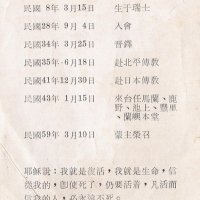 民國 8年 3月15日 生于瑞士
民國28年 9月 4日 入會
民國34年 3月25日 晉鐸
民國35年 7月18日 赴北平傳教
民國41年12月30日 赴日本傳教
民國43年 1月15日 來台任馬蘭、鹿
野、池上、豐里
、蘭嶼本堂
民國59年 3月10日 蒙主榮召
耶穌說：我就是復活，我就是生命，信
從我的，即使死了，仍要活着，凡活而
信從我的人，必永遠不死。